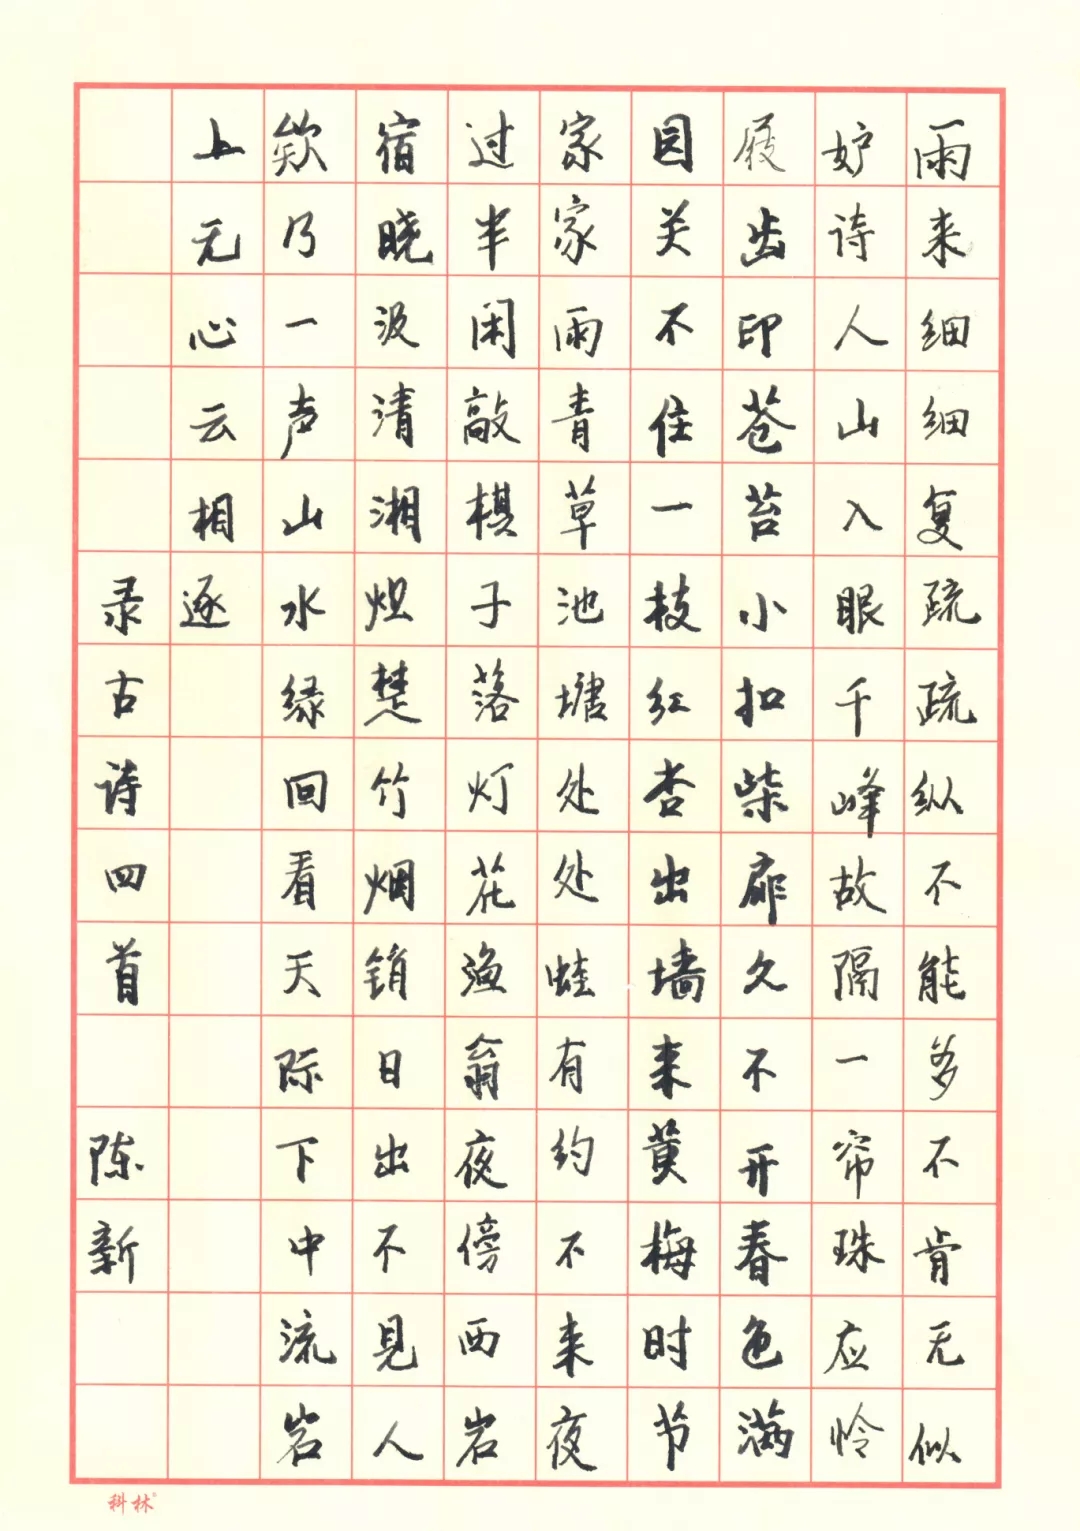 雨来细细复疏疏纵不能多不肯无似
妒诗人山入眼千峰故隔一帘珠应怜
屐齿印苍苔小扣柴扉久不开春色满
园关不住一枝红杏出墙来黄梅时节
家家雨青草池塘处处蛙有约不来夜
过半闲敲棋子落灯花渔翁夜傍西岩
宿晓汲清湘燃楚竹烟销日出不见人
欸乃一声山水绿回看天际下中流岩
上无心云相逐
录古诗四首 陈新
科林